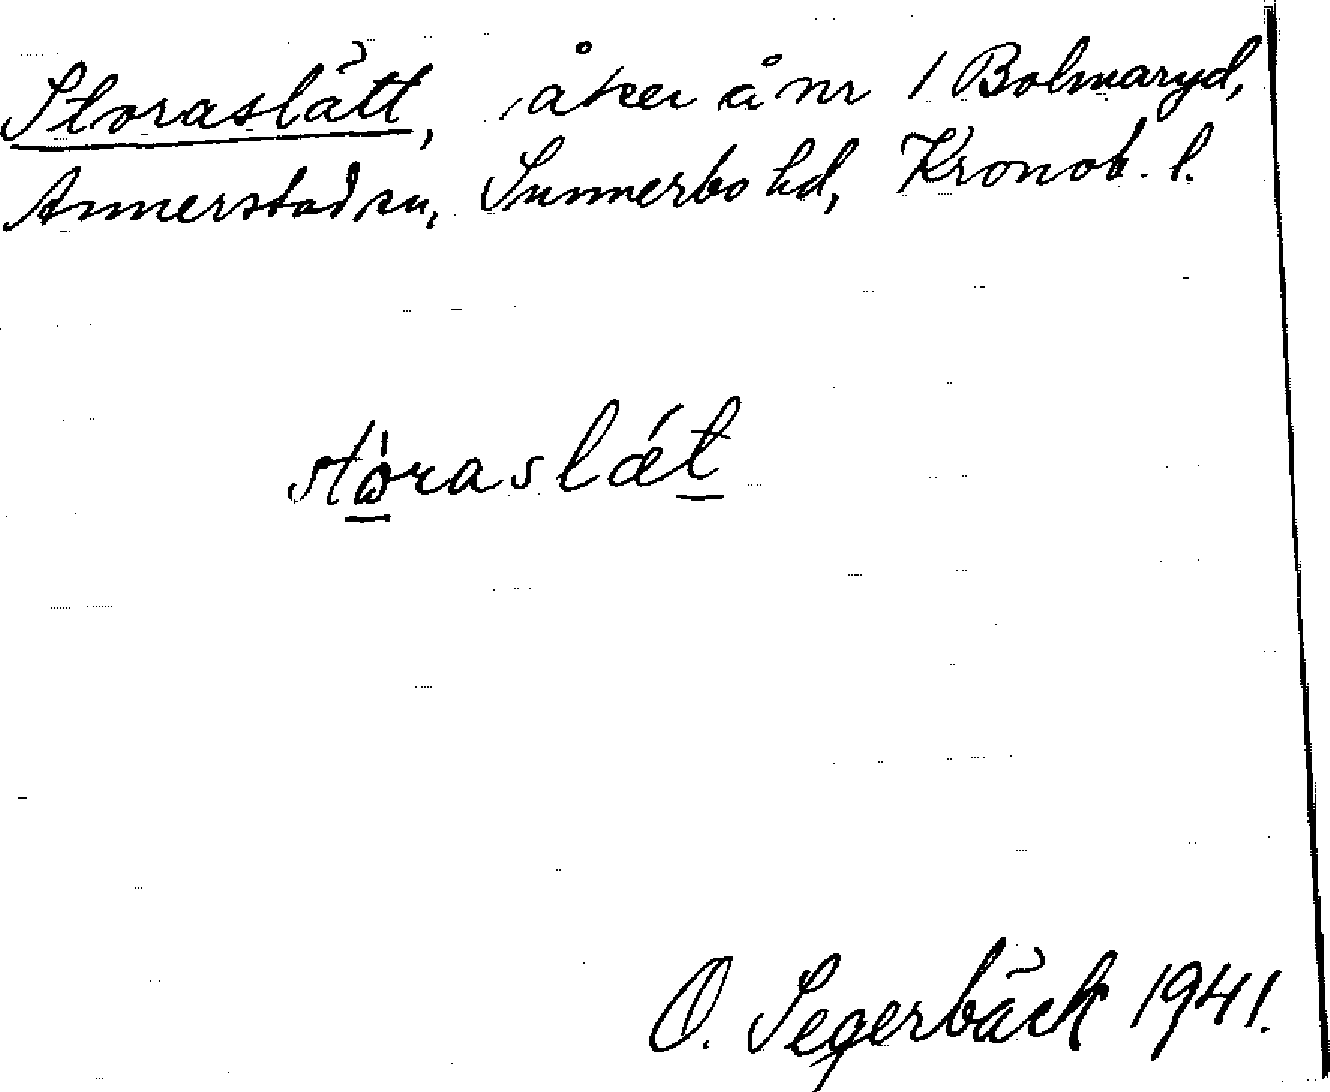 Storaslätt, åker å nr 1 Bolmaryd,
Annerstad sn, Sunnerbo hd, Kronob. l.
stòraslát
O. Segerbäck 1941.